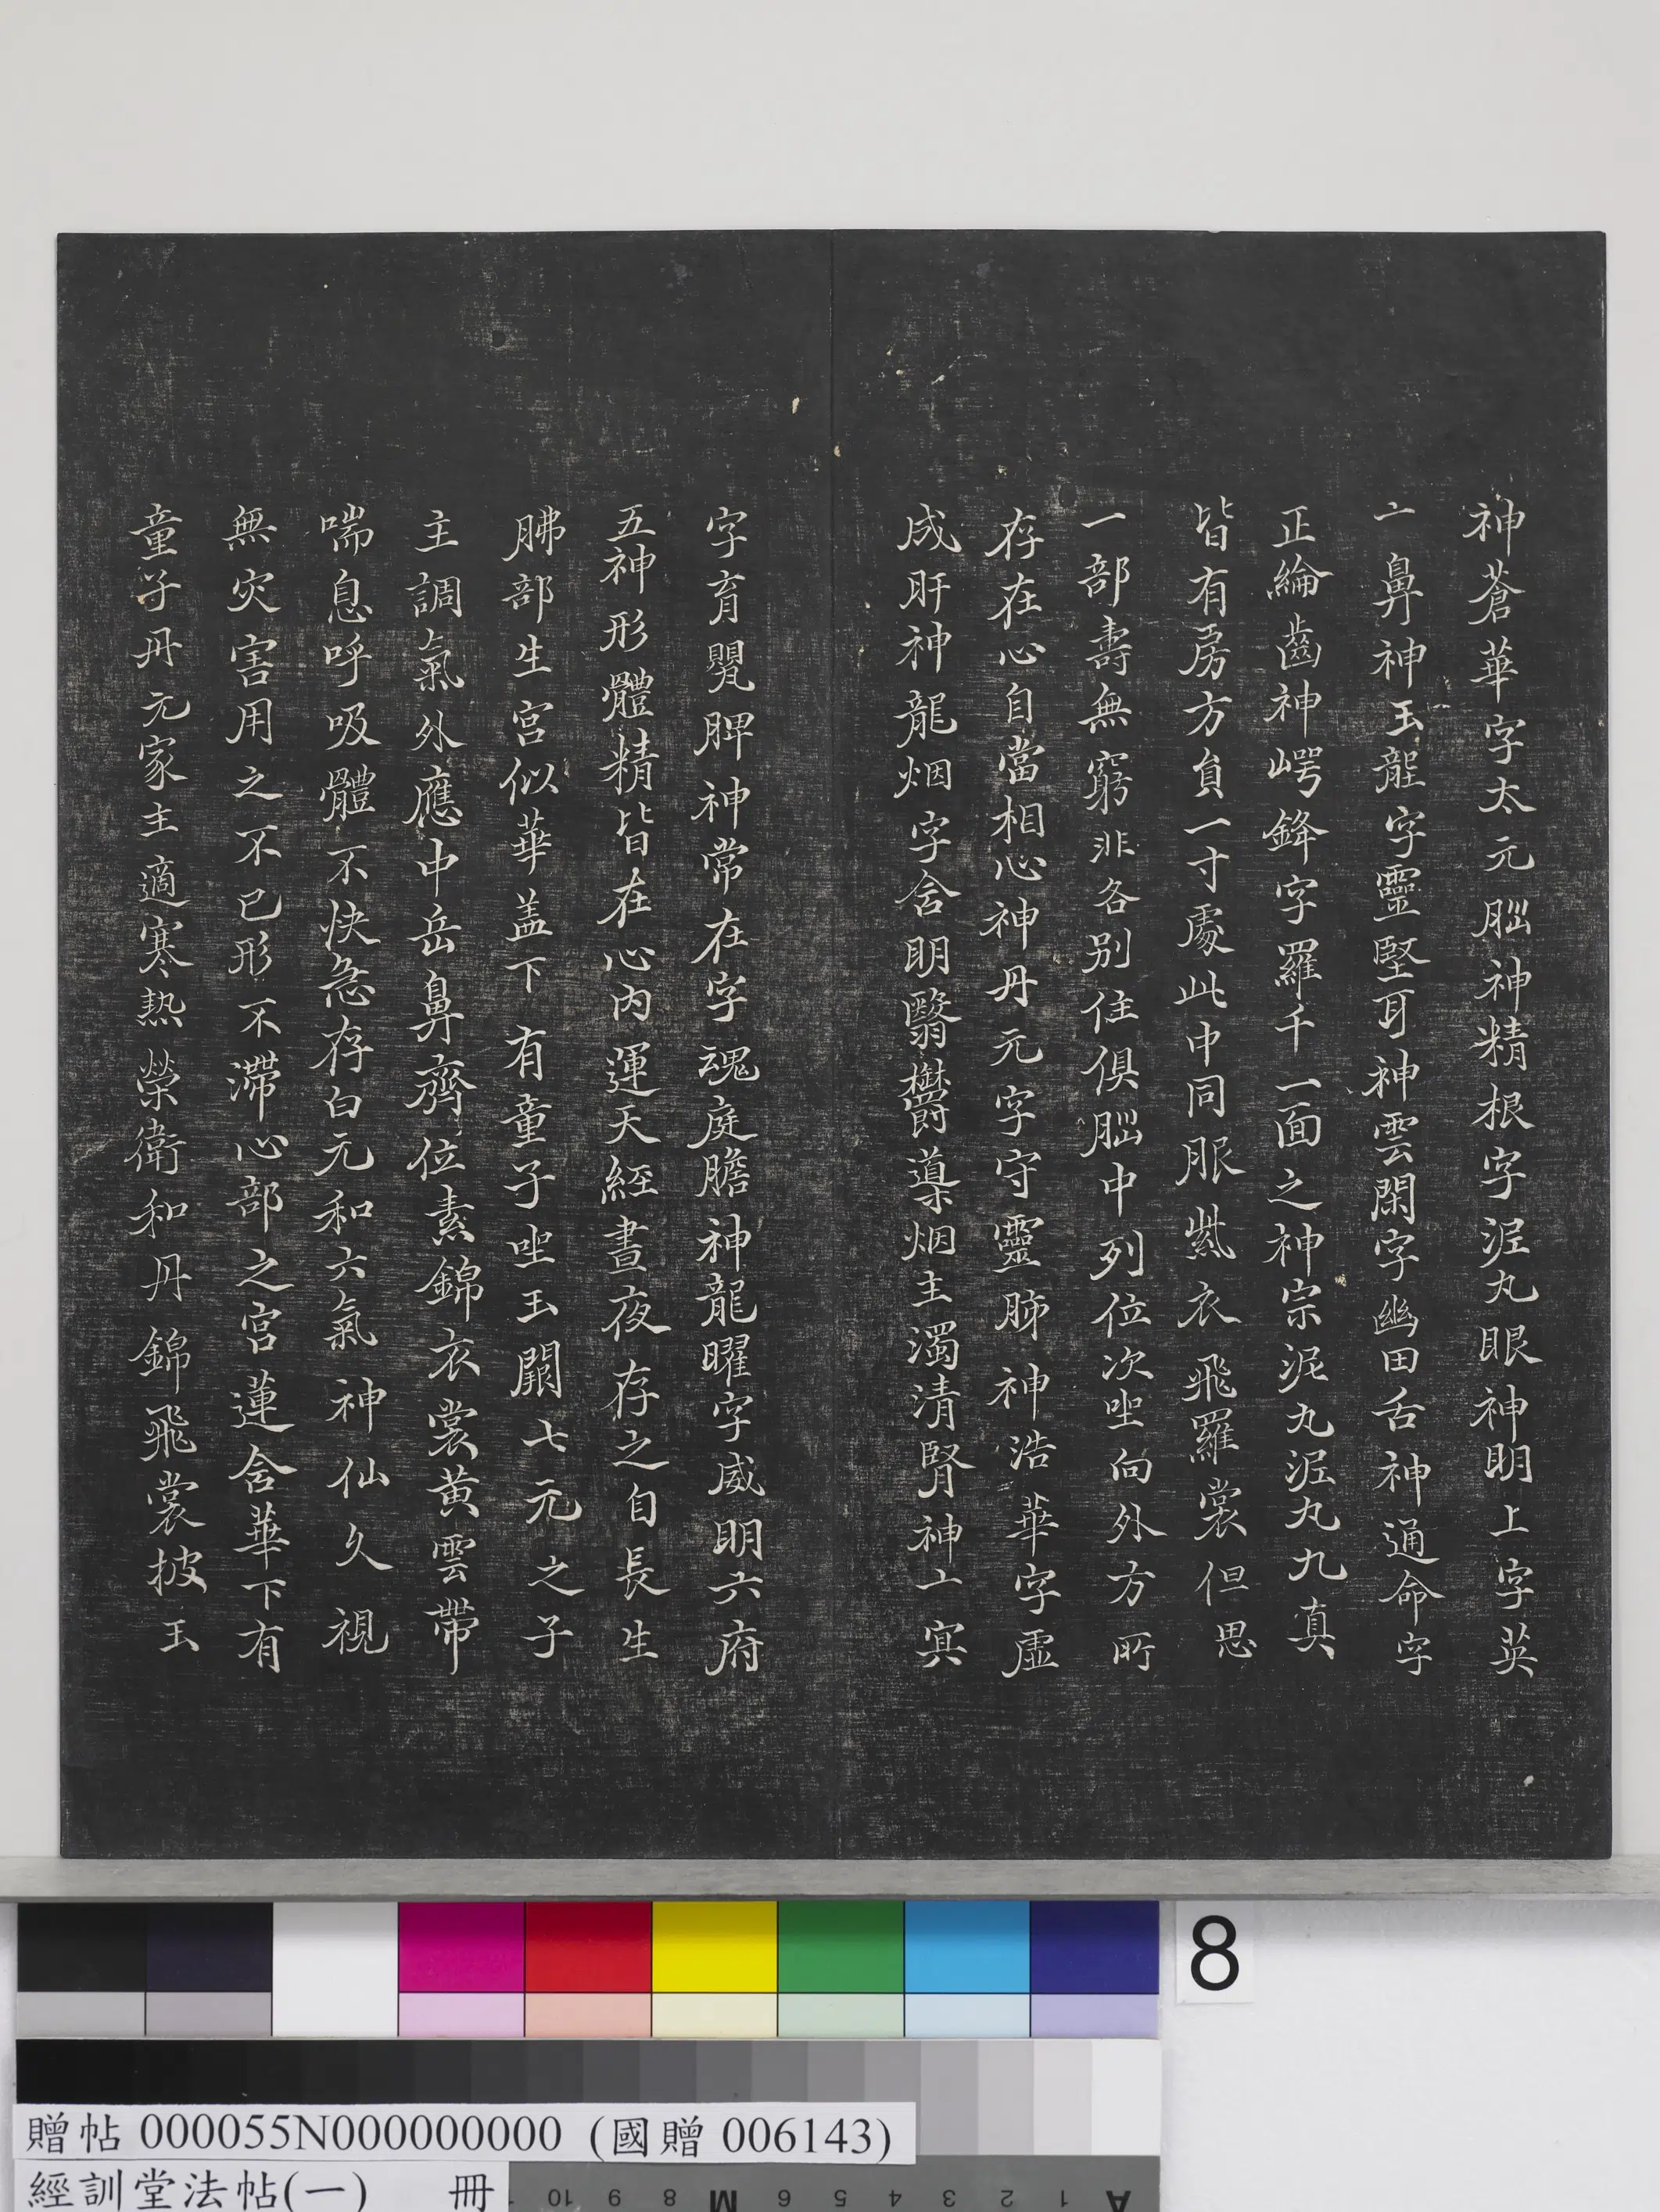 神蒼華字太元腦神精根字泥丸眼神明上字英
亠鼻神玉壟字靈堅耳神雲閑字幽田舌神通命字
正綸齒神崿鋒字羅千一面之神宗泥丸泥丸九真
皆有房方負一寸處此中同服紫衣飛羅裳但思
一部壽無窮非各別住俱腦中列位次坐向外方所
存在心自當相心神丹元字守靈肺神浩華字虛
成肝神龍烟字含明翳欝導烟主濁清腎神亠冥
字育嬰脾神常在字魂庭膽神龍曜字威明六府
五神形體精皆在心內運天經晝夜存之自長生
肺部生宮似華盖下有童子坐玉闕七元之子
主調氣外應中岳鼻齊位素錦衣裳黃雲帶
喘息呼吸體不快急存白元和六氣神仙久視
無灾害用之不已形不滯心部之宮蓮含華下有
童子丹元家主適寒熱榮衛和丹錦飛裳披玉
8
贈帖 000055N000000000 (國贈 006143)
經訓堂法帖(一) 冊
A 1 2 3 4 5 6 M 8 9 10